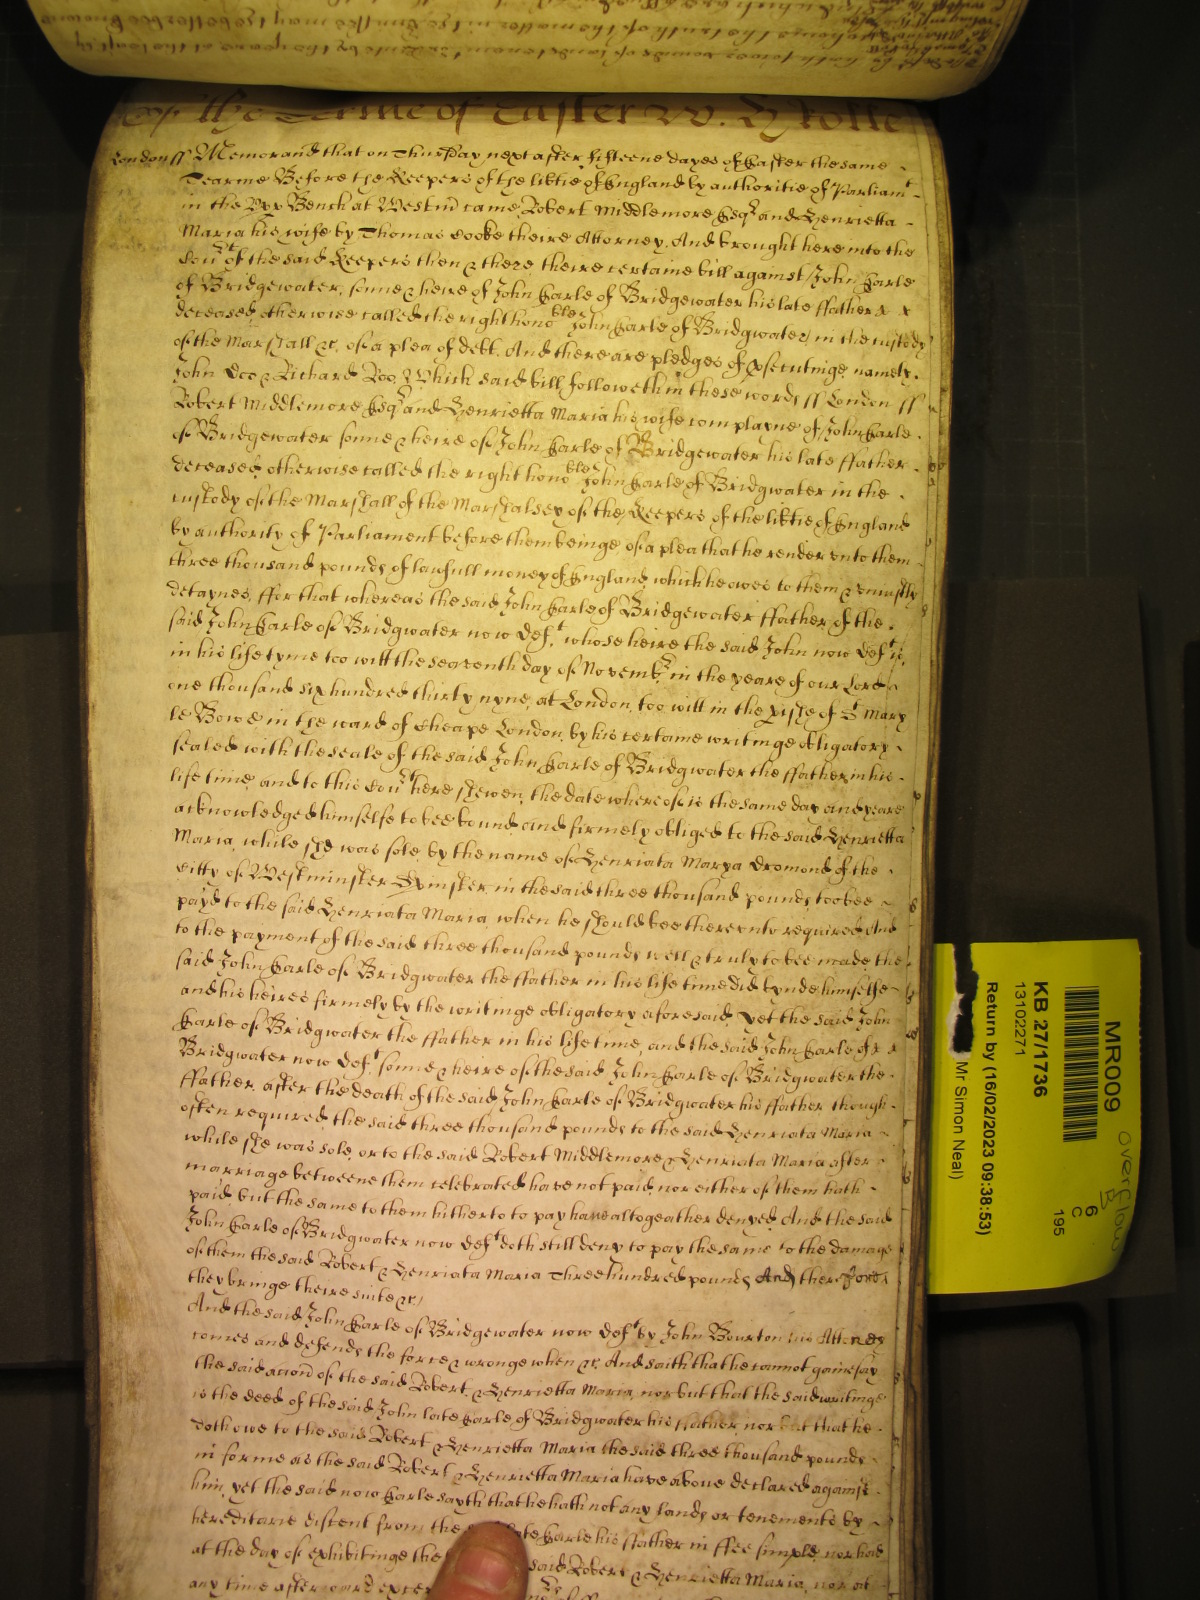 Of the Terme of Easter W. H Rolle
London ss Memorand that on Thursday next after fifteene dayes of Easter the same
Tearme Before the Keepers of the libtie of England by authoritie of Parliamt
in the Vpp Bench at Westm came Robert Middlemore Esqr and Henrietta
Maria his wife by Thomas Cooke theire Attorney. And brought here into the
Court of the said Keepers then & there theire certaine bill against John Earle
of Bridgewater, sonne & heire of John Earle of Bridgewater his late ffather
deceased, otherwise called the right honoble John Earle of Bridgwater, in the custody
of the Marshall &c. of a plea of debt. And there are pledges of psecutinge, namely.
John Doo & Richard Roo, Which said bill followeth in these words ss London ss
Robert Middlemore Esqr and Henrietta Maria his wife complayne of John Earle
of Bridgewater sonne & heire of John Earle of Bridgewater his late ffather
deceased, otherwise called the right honoble John Earle of Bridgwater in the
custody of the Marshall of the Marshalsey of the Keepers of the libtie of England
by authority of Parliament before them beinge, of a plea that he render vnto them
three thousand pounds, of lawfull money of England, which he owes to them & eniustly
detaynes, ffor that whereas the said John Earle of Bridgewater ffather of the
said John Earle of Bridgwater now deft, whose heire the said John now deft is,
in his life tyme too witt the seaventh day of Novembr in the yeare of our Lord
one thousand six hundred thirty nyne, at London, too witt in the pishe of St Mary
le Bowe in the ward of Cheape London, by his certaine writinge obligatory
sealed with the seale of the said John Earle of Bridgwater the ffather in his
life time, and to this Court here shewen, the date whereof is the same day and yeare
acknowledged himselfe to bee bound and firmely obliged to the said Henrietta
Maria, while she was sole, by the name of Henriata Marya Dromond of the
Citty of Westminster Spinster, in the said three thousand pounds, too bee
payd to the said Henriata Maria, when he should bee therevnto required And
to the payment of the said three thousand pounds well & truly to bee made, the
said John Earle of Bridgwater the ffather in his life time did bynde himselfe
and his heires firmely by the writinge obligatory aforesaid, Yet the said John
Earle of Bridgwater the ffather in his life time, and the said John Earle of
Bridgwater now deft, sonne & heire of the said John Earle of Bridgwater the
ffather, after the death of the said John Earle of Bridgwater his ffather though
often required the said three thousand pounds to the said Henriata Maria
while she was sole, or to the said Robert Middlemore & Henriata Maria after
marriage betweene them celebrated have not paid, nor either of them hath
paid, but the same to them hitherto to pay have altogeather denyed, And the said
John Earle of Bridgwater now deft doth still deny to pay the same to the damage
of them the said Robert & Henriata Maria Three hundred pounds And therefore
they bringe theire suite &c.
And the said John Earle of Bridgewater now deft by John Bourton his Attorney
comes and defends the force & wronge when &c. And saith that he cannot gainesay
the said accon of the said Robert & Henrietta Maria, nor but that the said writinge
is the deed of the said John late Earle of Bridgwater his ffather, nor but that he
doth owe to the said Robert & Henrietta Maria the said three thousand pounds
in forme as the said Robert & Henrietta Maria have above declared against
him, yet the said now Earle sayth that he hath not any lands or tenements by
hereditarie discent from the late Earle his ffather in ffee simple, nor had
at the day of exhibitinge the said Robert & Henrietta Maria, nor at
any time afterward except
MR009
KB 27/1736
13102271
Return by (16/02/2023 09:38:53)
Mr Simon Neal)
6
C
195
Overflow
B